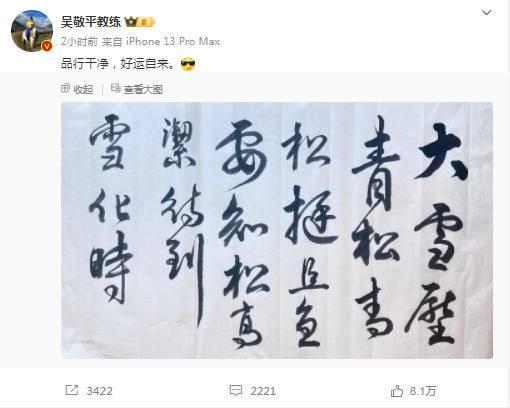 吴敬平教练
2小时前 来自 iPhone 13 Pro Max
品行干净，好运自来。😎
收起 查看大图
大雪壓
青松青
松挺且直
要知松高
潔待到
雪化時
3422 2221 8.1万